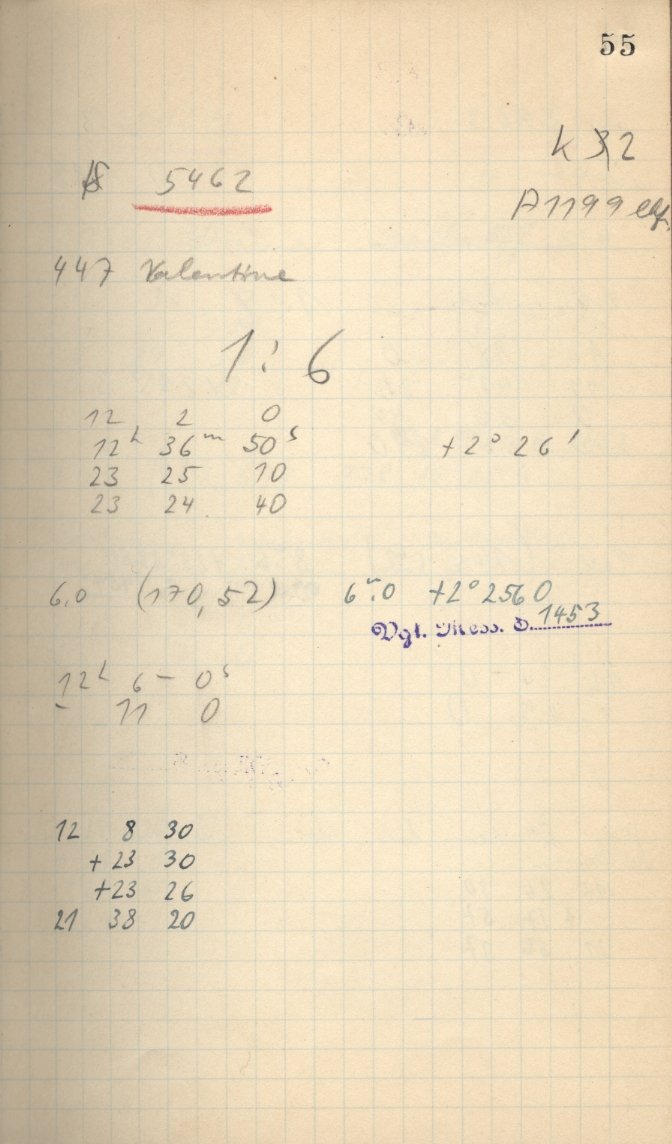 55
K 2
5462
A1199
447 Valentine
1:6
12 2 0
12h 36m 50s +2° 26'
23 25 10
23 24 40
6,0 (170,52) 6m.0 +2° 2560
Vgl. Mess. S. 1453
12h 6m 0s
- 11 0
12 8 30
+23 30
+23 26
21 38 20